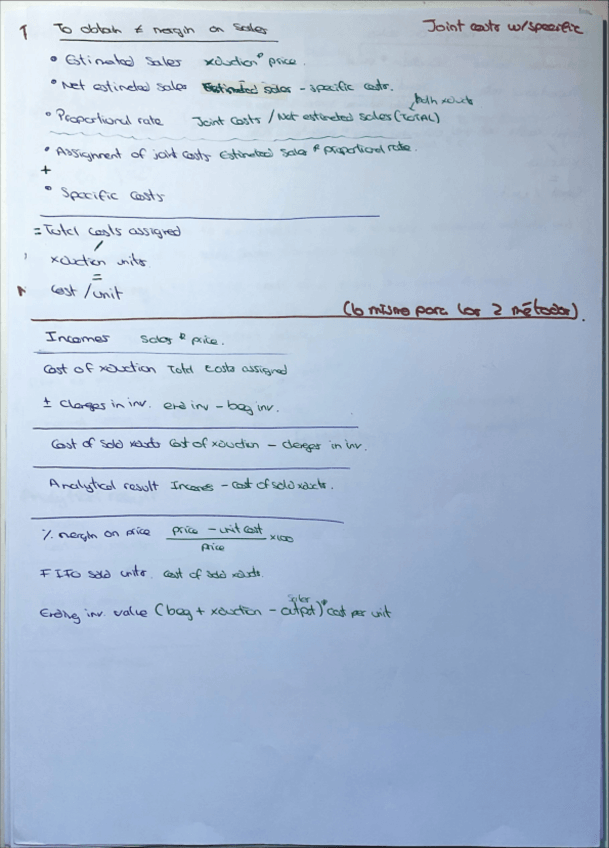 1 To obtain ≠ margin on sales
Joint costs w/specific
• Estimated sales xduction * price.
• Net estimated sales Estimated sales - specific costs.
both xducts
• Proportional rate Joint costs / Net estimated sales (TOTAL)
• Assignment of joint costs Estimated sales * proportional rate.
+
• Specific costs
= Total costs assigned
/
xduction units
=
Cost / unit
(lo mismo para los 2 métodos).
Incomes sales * price.
Cost of xduction Total costs assigned
± Changes in inv. end inv - beg inv.
Cost of sold xducts Cost of xduction - changes in inv.
Analytical result Incomes - cost of sold xducts.
% margin on price price - unit cost / price x100
FIFO sold units. cost of sold xducts.
sales
Ending inv. value (beg + xduction - output) * cost per unit